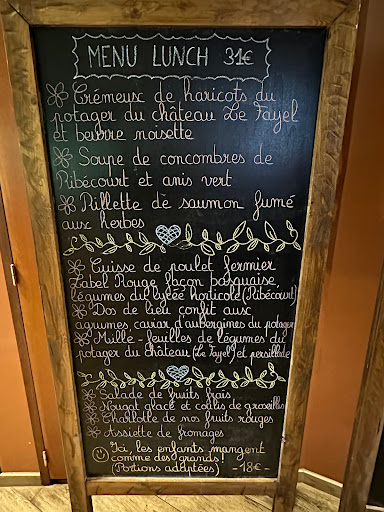 MENU LUNCH 31€
Crémeux de haricots du
potager du château Le Fayel
et beurre noisette
Soupe de concombres de
Ribécourt et anis vert
Rillette de saumon fumé
aux herbes
Cuisse de poulet fermier
Label Rouge façon basquaise,
légumes du lycée horticole (Ribécourt)
Dos de lieu confit aux
agrumes, caviar d'aubergines du potager
Mille-feuilles de légumes du
potager du château (Le Fayel) et persillade
Salade de fruits frais
Nougat glacé et coulis de groseilles
Charlotte de nos fruits rouges
Assiette de fromages
Ici, les enfants mangent
comme des grands !
(Portions adaptées) -18€-